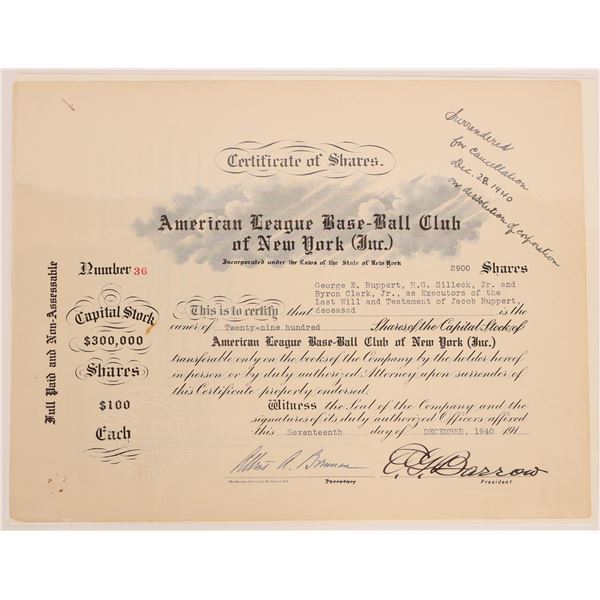 Surrendered
for cancellation
Dec. 28, 1940
on dissolution of coporation
Certificate of Shares.
American League Base-Ball Club
of New York (Inc.)
Incorporated under the Laws of the State of New York
Number 36
2900 Shares
George E. Ruppert, H.G. Silleck, Jr. and
Byron Clark, Jr., as Executors of the
Last Will and Testament of Jacob Ruppert,
This is to certify that deceased is the
owner of Twenty-nine hundred Shares of the Capital Stock of
American League Base-Ball Club of New York (Inc.)
transferable only on the books of the Company by the holder hereof
in person or by duly authorized Attorney upon surrender of
this Certificate properly endorsed.
Witness the Seal of the Company and the
signatures of its duly authorized Officers affixed
this Seventeenth day of DECEMBER, 1940 191
Full Paid and Non-Assessable
Capital Stock
$300,000
Shares
$100
Each
E. G. Barrow
Secretary
President